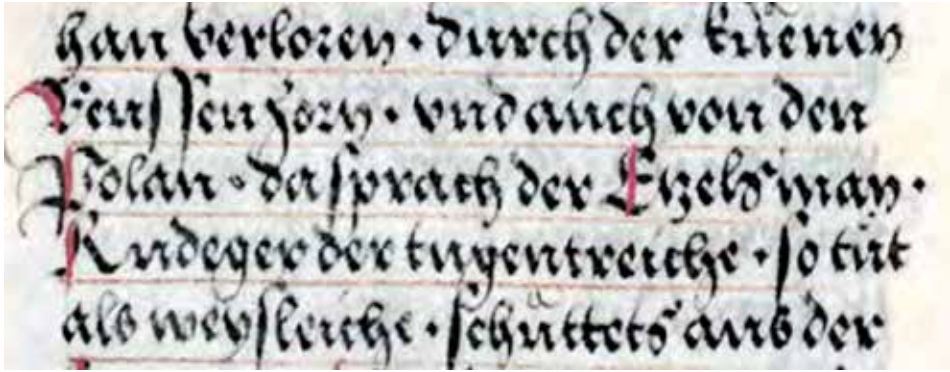 han verloren · durch der küenen
Reussen zorn · vnd auch von den
Polan · da sprach der Etzels man ·
Rudeger der tugentreiche · so tůt
als weysleiche · schuttets aus der